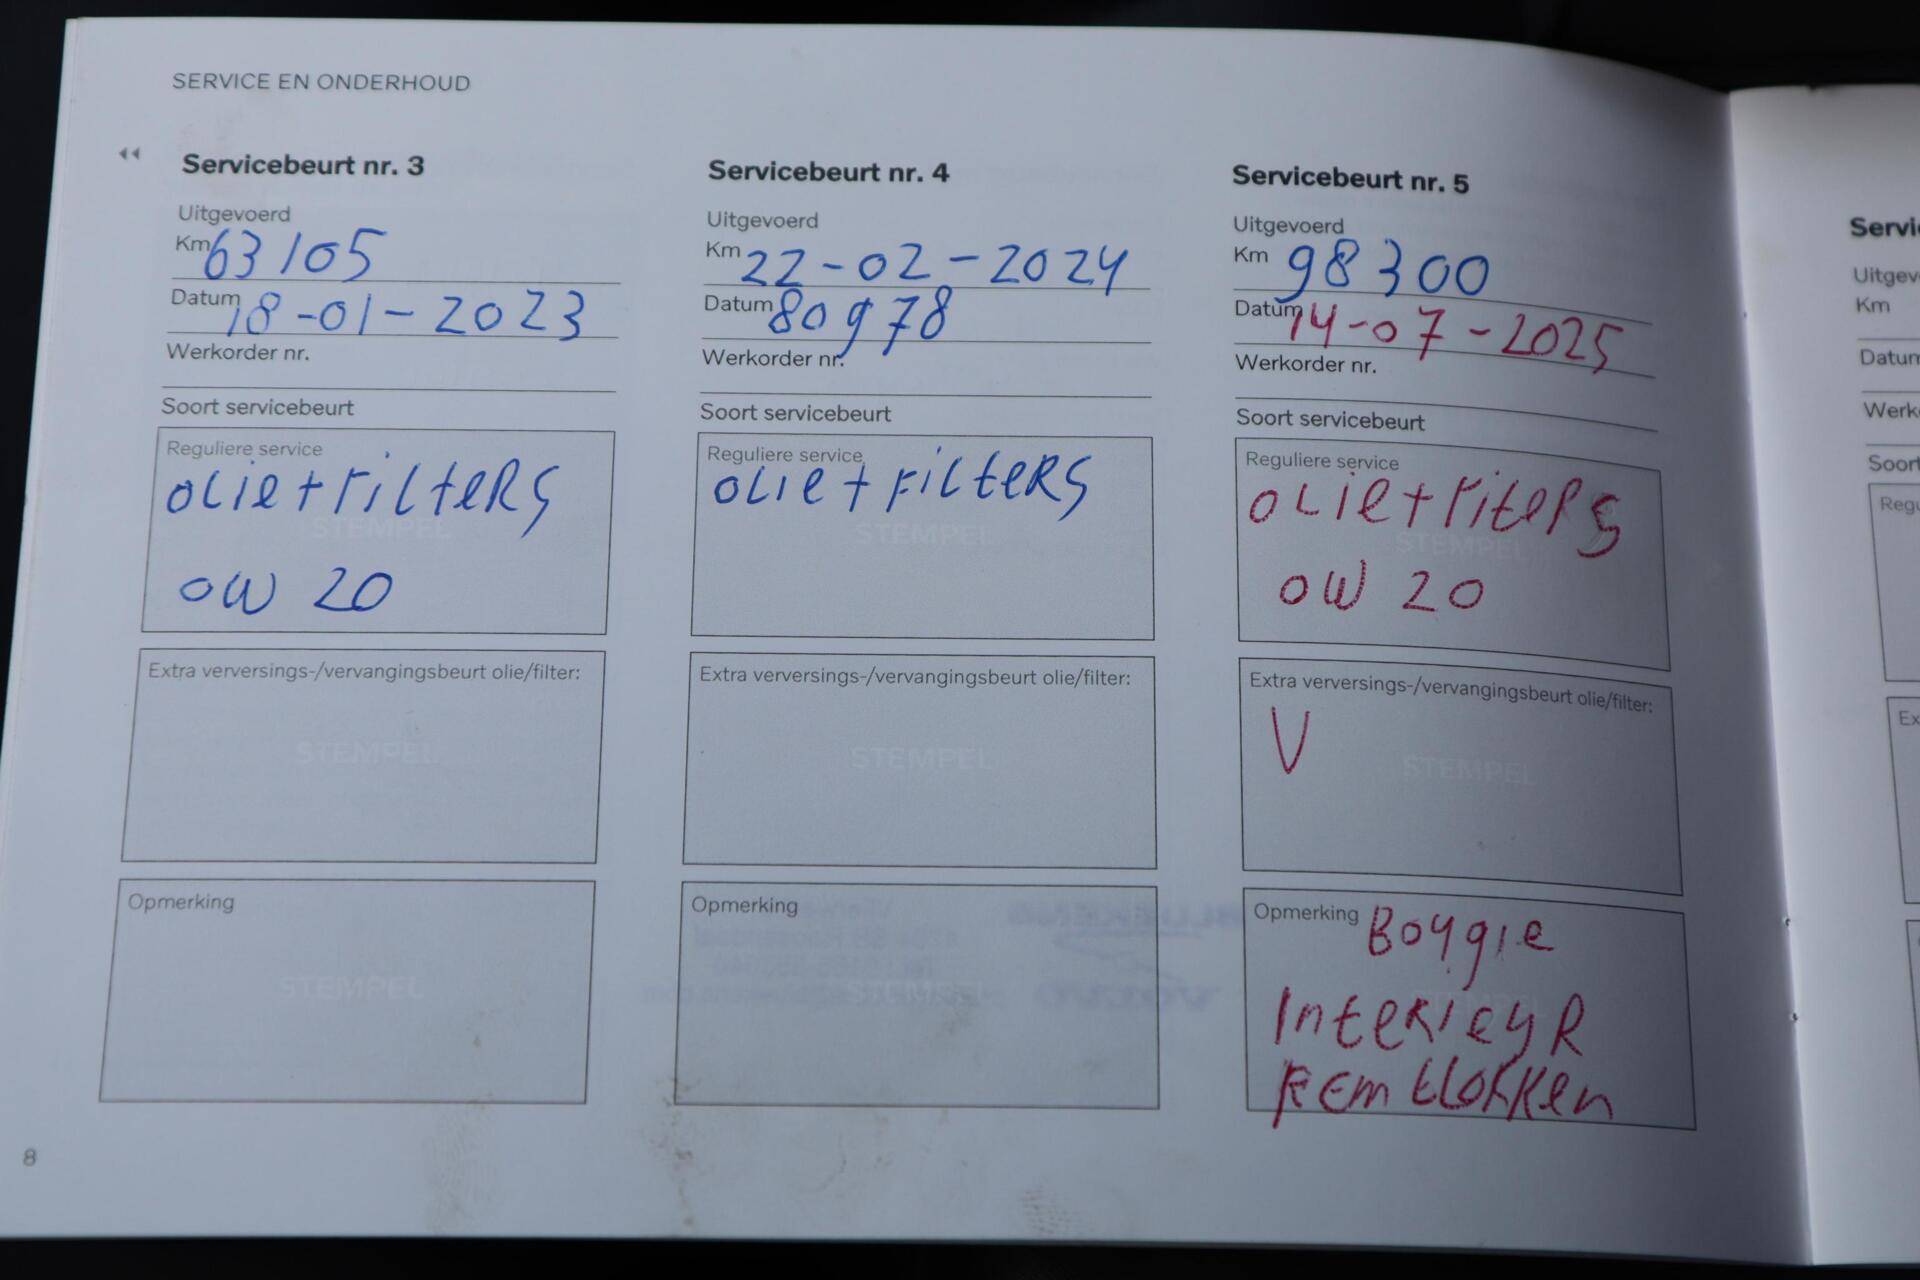 SERVICE EN ONDERHOUD
Servicebeurt nr. 3
Uitgevoerd
Km 63105
Datum 18-01-2023
Werkorder nr.
Soort servicebeurt
Reguliere service
OLie+FiLteRS
STEMPEL
OW 20
Extra verversings-/vervangingsbeurt olie/filter:
STEMPEL
Opmerking
STEMPEL
8
Servicebeurt nr. 4
Uitgevoerd
Km 22-02-2024
Datum 80978
Werkorder nr.
Soort servicebeurt
Reguliere service
OLie+FiLteRS
STEMPEL
Extra verversings-/vervangingsbeurt olie/filter:
STEMPEL
Opmerking
STEMPEL
Servicebeurt nr. 5
Uitgevoerd
Km 98300
Datum 14-07-2025
Werkorder nr.
Soort servicebeurt
Reguliere service
OLie+FiteRS
STEMPEL
OW 20
Extra verversings-/vervangingsbeurt olie/filter:
V
STEMPEL
Opmerking Boygie
InteRieyR
STEMPEL
REmbLoKKen
Servi
Uitgev
Km
Datum
Werko
Soort
Regu
Ex